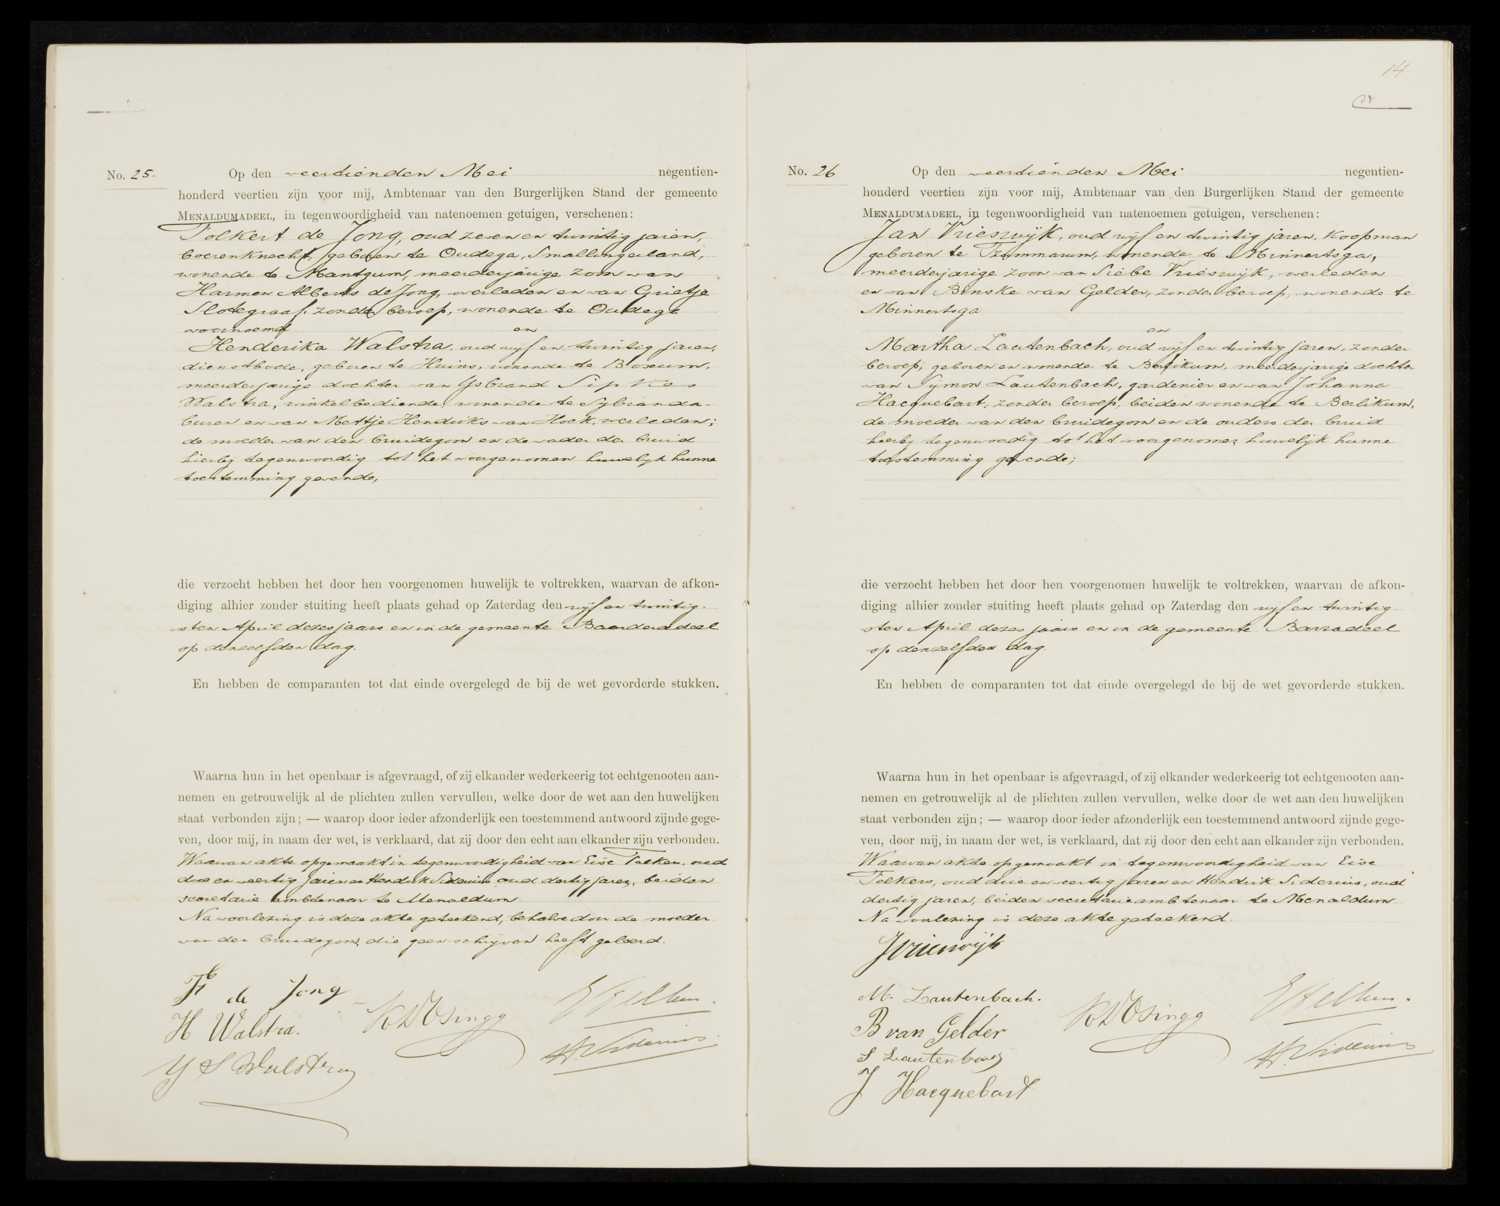 No. 25.
Op den veertienden Mei negentien-
honderd veertien zijn voor mij, Ambtenaar van den Burgerlijken Stand der gemeente
MENALDUMADEEL, in tegenwoordigheid van natenoemen getuigen, verschenen:
Folkert de Jong, oud zeven en twintig jaren,
boerenknecht, geboren te Oudega, Smallingerland,
wonende te Mantgum, meerderjarige zoon van
Harmen Alberts de Jong, overleden en van Grietje
Slotegraaf, zonder beroep, wonende te Oudega
voornoemd
en
Henderika Walstra, oud vijf en twintig jaren,
dienstbode, geboren te Huins, wonende te Boxum,
meerderjarige dochter van IJsbrand Sipkes
Walstra, winkelbediende, wonende te Sybranda-
buren en van Mettje Hendriks van Hoek, overleden;
de moeder van den bruidegom en de vader der bruid
hierbij tegenwoordig tot het voorgenomen huwelijk hunne
toestemming gevende,
die verzocht hebben het door hen voorgenomen huwelijk te voltrekken, waarvan de afkon-
diging alhier zonder stuiting heeft plaats gehad op Zaterdag den vijf en twintig-
sten April dezes jaars en in de gemeente Baarderadeel
op denzelfden dag.
En hebben de comparanten tot dat einde overgelegd de bij de wet gevorderde stukken.
Waarna hun in het openbaar is afgevraagd, of zij elkander wederkeerig tot echtgenooten aan-
nemen en getrouwelijk al de plichten zullen vervullen, welke door de wet aan den huwelijken
staat verbonden zijn; — waarop door ieder afzonderlijk een toestemmend antwoord zijnde gege-
ven, door mij, in naam der wet, is verklaard, dat zij door den echt aan elkander zijn verbonden.
Waarvan akte opgemaakt in tegenwoordigheid van Eise Folkers, oud
drie en veertig jaren en Hendrik Siderius, oud dertig jaren, beiden
secretarie ambtenaar te Menaldum
Na voorlezing is deze akte geteekend, behalve door de moeder
van den bruidegom, die geen schrijven heeft geleerd.
F de Jong
H Walstra.
IJ S Walstra
14
No. 26
Op den veertienden Mei negentien-
honderd veertien zijn voor mij, Ambtenaar van den Burgerlijken Stand der gemeente
MENALDUMADEEL, in tegenwoordigheid van natenoemen getuigen, verschenen:
Jan Vrieswijk, oud vijf en twintig jaren, koopman
geboren te Tzummarum, wonende te Minnertsga,
meerderjarige zoon van Siebe Vrieswijk, overleden
en van Benske van Gelder, zonder beroep, wonende te
Minnertsga
en
Martha Lautenbach, oud vijf en twintig jaren, zonder
beroep, geboren en wonende te Berlikum, meerderjarige dochter
van Symon Lautenbach, gardenier en van Johanna
Hacquebart, zonder beroep, beiden wonende te Berlikum,
de moeder van den bruidegom en de ouders der bruid
hierbij tegenwoordig tot het voorgenomen huwelijk hunne
toestemming gevende;
die verzocht hebben het door hen voorgenomen huwelijk te voltrekken, waarvan de afkon-
diging alhier zonder stuiting heeft plaats gehad op Zaterdag den vijf en twintig
sten April dezes jaars en in de gemeente Barradeel
op denzelfden dag
En hebben de comparanten tot dat einde overgelegd de bij de wet gevorderde stukken.
Waarna hun in het openbaar is afgevraagd, of zij elkander wederkeerig tot echtgenooten aan-
nemen en getrouwelijk al de plichten zullen vervullen, welke door de wet aan den huwelijken
staat verbonden zijn; — waarop door ieder afzonderlijk een toestemmend antwoord zijnde gege-
ven, door mij, in naam der wet, is verklaard, dat zij door den echt aan elkander zijn verbonden.
Waarvan akte opgemaakt in tegenwoordigheid van Eise
Folkers, oud drie en veertig jaren en Hendrik Siderius, oud
dertig jaren, beiden secretarie ambtenaar te Menaldum
Na voorlezing is deze akte geteekend.
JVrieswijk
M. Lautenbach.
B van Gelder
S Lautenbach
J Hacquebart
H. Siderius